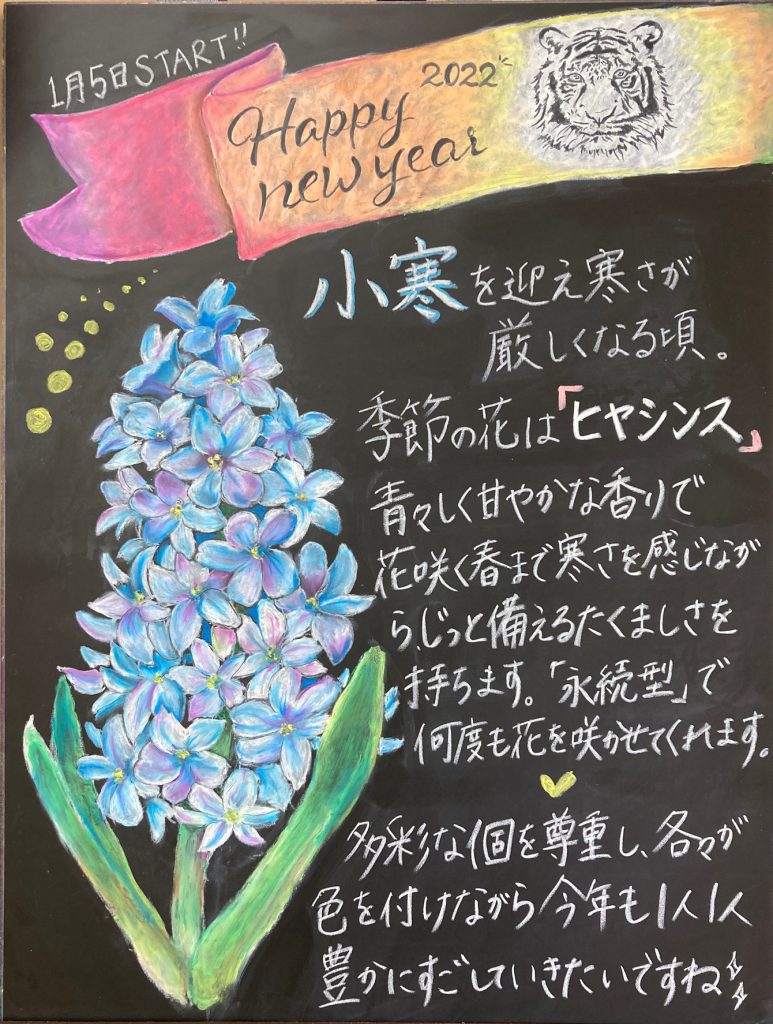 1月5日START!!
2022
Happy
new year
小寒を迎え寒さが
厳しくなる頃。
季節の花は「ヒヤシンス」
青々しく甘やかな香りで
花咲く春まで寒さを感じなが
ら、じっと備えるたくましさを
持ちます。「永続型」で
何度も花を咲かせてくれます。
多彩な個を尊重し、各々が
色を付けながら今年も1人1人
豊かにすごしていきたいですね